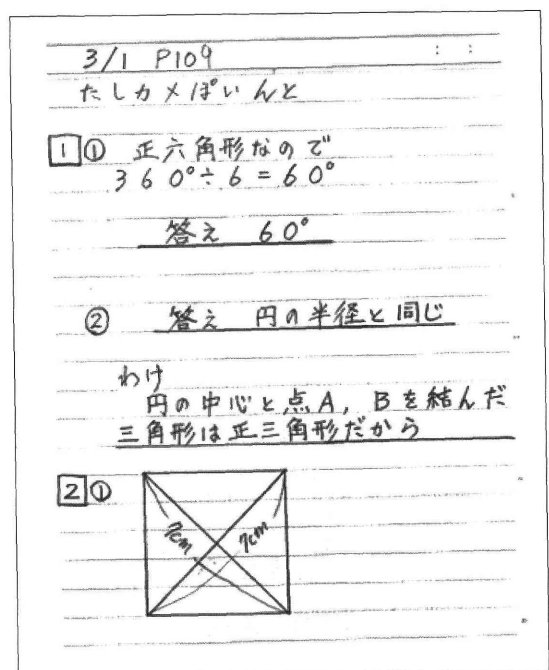 3/1 P109
たしカメぽいんと
1① 正六角形なので
360°÷6=60°
答え 60°
② 答え 円の半径と同じ
わけ
円の中心と点A, Bを結んだ
三角形は正三角形だから
2①
7cm 7cm